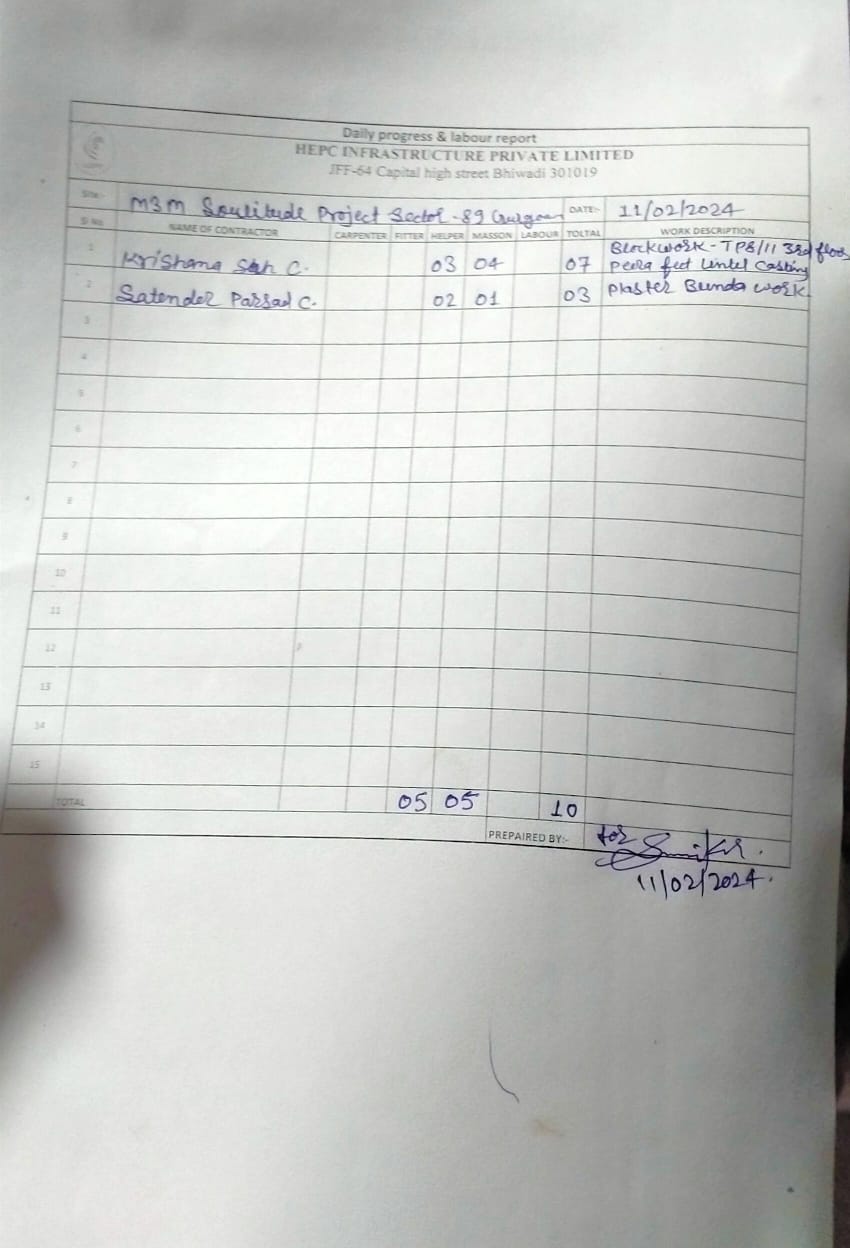 Daily progress & labour report
HEPC INFRASTRUCTURE PRIVATE LIMITED
JFF-64 Capital high street Bhiwadi 301019
Site:- M3M Soulitude Project Sector-89 Gurgaon DATE:- 11/02/2024
Sl No NAME OF CONTRACTOR CARPENTER FITTER HELPER MASSON LABOUR TOLTAL WORK DESCRIPTION
1 Krishana Sah C. 03 04 07 Blockwork - TPB/11 3rd floor
Peera feet Lintel Casting
2 Satender Parsad C. 02 01 03 Plaster Bunda work
3
4
5
6
7
8
9
10
11
12
13
14
15
TOTAL 05 05 10
PREPAIRED BY:- for
11/02/2024.